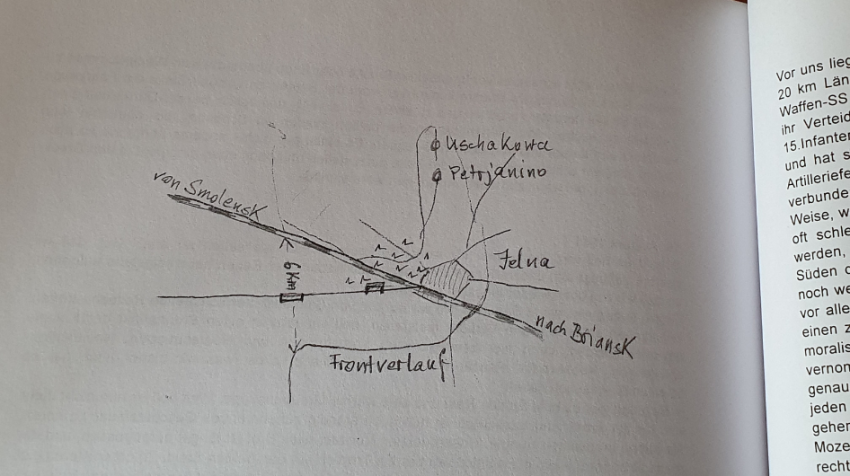 Uschakowa
Petrjanino
von Smolensk
6 Km
Jelna
nach Briansk
Frontverlauf
Vor uns lieg
20 km Län
Waffen-SS
ihr Verteid
15.Infanter
und hat s
Artilleriefe
verbunde
Weise, w
oft schle
werden,
Süden d
noch we
vor alle
einen z
moralis
vernom
genau
jeden
geher
Moze
recht